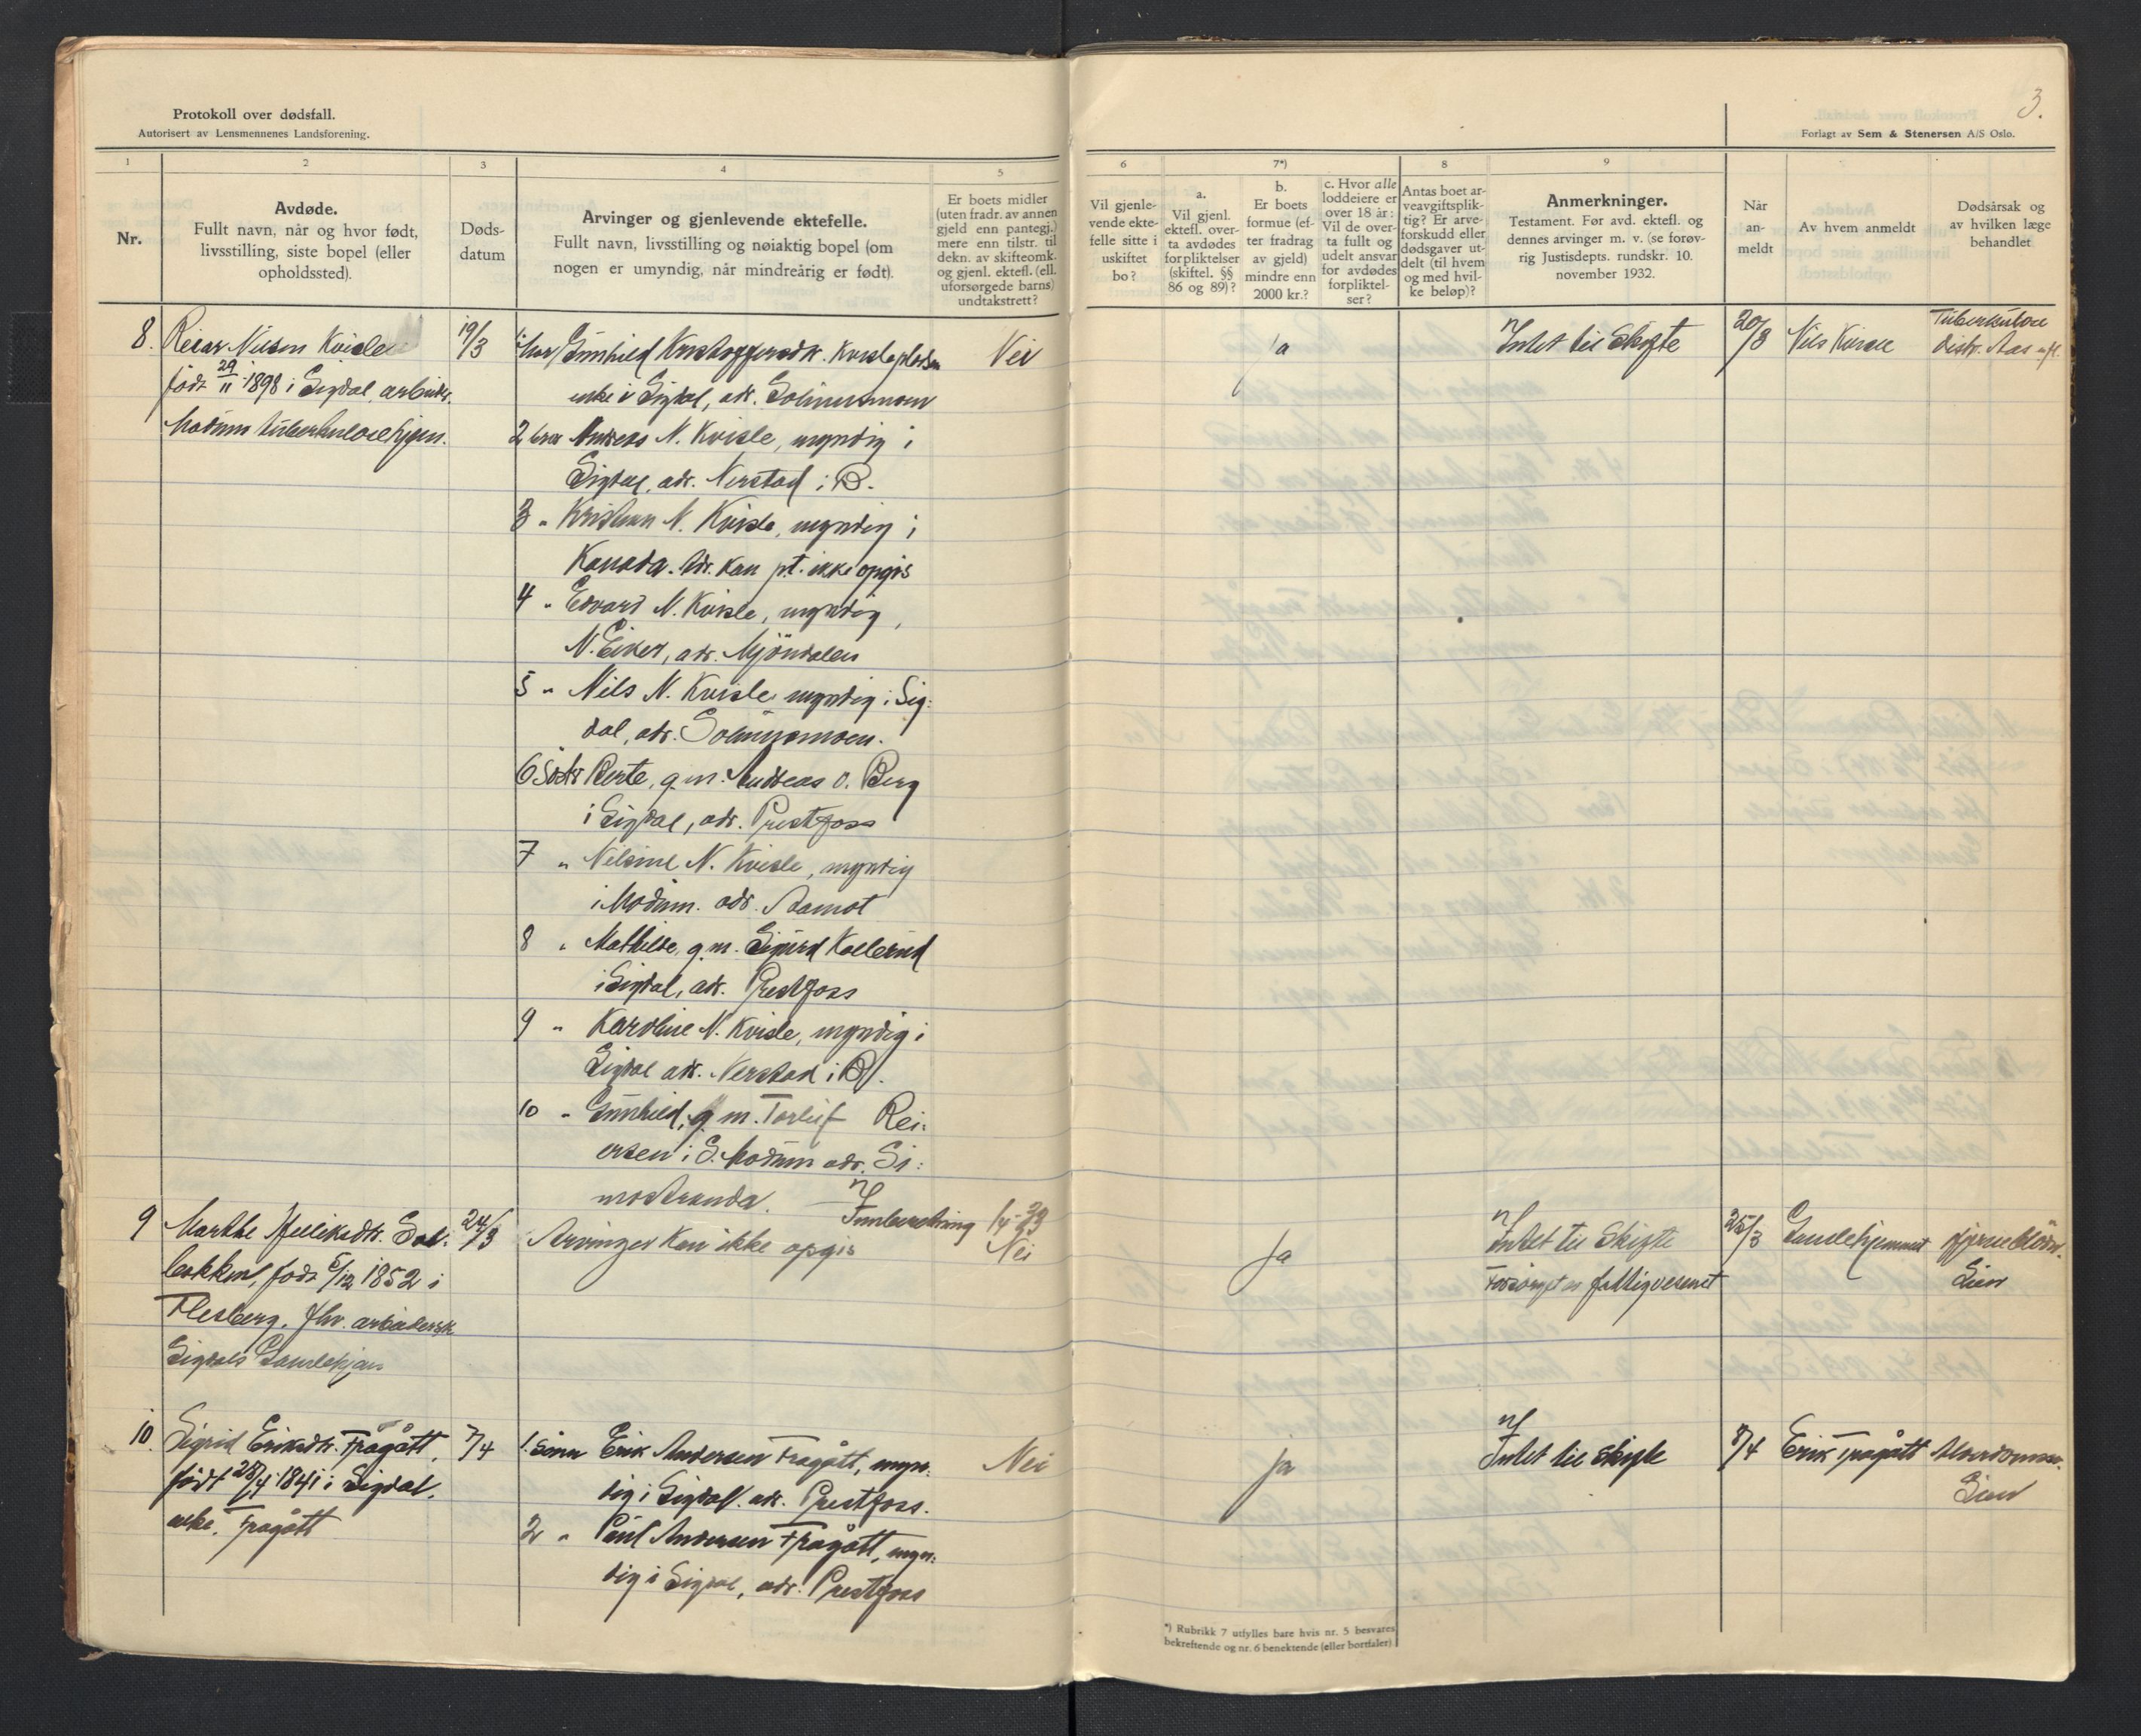 Protokoll over dødsfall.
Autorisert av Lensmennenes Landsforening.
1
2
3
4
5
Nr.
Avdøde.
Fullt navn, når og hvor født,
livsstilling, siste bopel (eller
opholdssted).
Døds-
datum
Arvinger og gjenlevende ektefelle.
Fullt navn, livsstilling og nøiaktig bopel (om
nogen er umyndig, når mindreårig er født).
Er boets midler
(uten fradr. av annen
gjeld enn pantegj.)
mere enn tilstr. til
dekn. av skifteomk.
og gjenl. ektefl. (ell.
uforsørgede barns)
undtakstrett?
8. Reiar Nilsen Kvisle
født 29/11 1898 i Sigdal, arbeider.
Modum tuberkulosehjem.
19/3
1 Mor Gunhild Kristoffersdtr. Kvisleplassen
enke i Sigdal, adr. Solumsmoen
2 bror Andreas N. Kvisle, myndig i
Sigdal, adr. Nerstad i B.
3 " Kristian N. Kvisle, myndig i
Kanada. Adr. kan pt. ikke opgis
4 " Edvard N. Kvisle, myndig,
N. Eiker, adr. Mjöndalen
5 " Nils N. Kvisle, myndig i Sig:
dal, adr. Solumsmoen.
6 Söster Berte, g.m. Andreas O. Berg
i Sigdal, adr. Prestfoss
7 " Nilsine N. Kvisle, myndig
i Modum. adr. Aamot
8 " Mathilde, g.m. Sigurd Kollerud
i Sigdal, adr. Prestfoss
9 " Karoline N. Kvisle, myndig i
Sigdal adr. Nerstad i B.
10 " Gunhild, g.m. Torleif Rei:
ersen i S. Modum adr. Si:
mostranda.
Nei
9 Marthe
bakken, født 5/12 1852 i
Flesberg. fhv. arbeidersk
Sigdals Gamlehjem
24/3
Arvinger kan ikke opgis
Innberetning 1/4-33
Nei
10. Sigrid Eriksdtr. Frågått,
født 28/4 1841 i Sigdal.
enke. Frågått
7/4
1. Sönn Erik Andersen Frågått, myn:
dig i Sigdal. adr. Prestfoss.
2 " Paul Andersen Frågått, myn:
dig i Sigdal, adr. Prestfoss
Nei
3.
Forlagt av Sem & Stenersen A/S Oslo.
6
7*)
8
9
Vil gjenle-
vende ekte-
felle sitte i
uskiftet
bo?
a.
Vil gjenl.
ektefl. over-
ta avdødes
forpliktelser
(skiftel. §§
86 og 89)?
b.
Er boets
formue (ef-
ter fradrag
av gjeld)
mindre enn
2000 kr.?
c. Hvor alle
loddeiere er
over 18 år:
Vil de over-
ta fullt og
udelt ansvar
for avdødes
forpliktel-
ser?
Antas boet ar-
veavgiftsplik-
tig? Er arve-
forskudd eller
dødsgaver ut-
delt (til hvem
og med hvil-
ke beløp)?
Anmerkninger.
Testament. Før avd. ektefl. og
dennes arvinger m. v. (se forøv-
rig Justisdepts. rundskr. 10.
november 1932.
Når
an-
meldt
Av hvem anmeldt
Dødsårsak og
av hvilken læge
behandlet
ja
Intet til Skifte
20/3
Nils Kvisle
Tuberkulose
distr. Aas
ja
Intet til Skifte
Forsörget av fattigvesenet
25/3
Gamlehjemmet
Lien
ja
Intet til Skifte
8/4
Erik Frågått
Alderdomssv.
Lien
*) Rubrikk 7 utfylles bare hvis nr. 5 besvares
bekreftende og nr. 6 benektende (eller bortfaler)